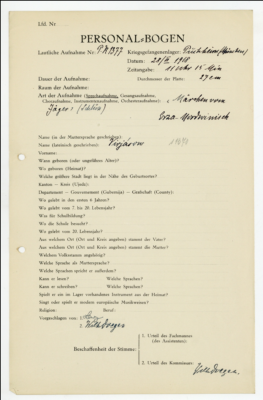 Lfd. Nr.
PERSONAL-BOGEN
Lautliche Aufnahme Nr. PK 1377
Kriegsgefangenenlager:
Datum: 28/II 1918
Zeitangabe: 11 Uhr 15 Min
Dauer der Aufnahme:
Durchmesser der Platte: 27 cm
Raum der Aufnahme:
Art der Aufnahme (Sprechaufnahme, Gesangsaufnahme,
Choraufnahme, Instrumentenaufnahme, Orchesteraufnahme):
Märchen vom
Jäger: (Schluß)
Erza-Mordwinisch
Name (in der Muttersprache geschrieben):
Name (lateinisch geschrieben):
Vorname:
Wann geboren (oder ungefähres Alter)?
Wo geboren (Heimat)?
Welche größere Stadt liegt in der Nähe des Geburtsortes?
Kanton — Kreis (Ujezd):
Departement — Gouvernement (Gubernija) — Grafschaft (County):
Wo gelebt in den ersten 6 Jahren?
Wo gelebt vom 7. bis 20. Lebensjahr?
Was für Schulbildung?
Wo die Schule besucht?
Wo gelebt vom 20. Lebensjahr?
Aus welchem Ort (Ort und Kreis angeben) stammt der Vater?
Aus welchem Ort (Ort und Kreis angeben) stammt die Mutter?
Welchem Volksstamm angehörig?
Welche Sprache als Muttersprache?
Welche Sprachen spricht er außerdem?
Kann er lesen? Welche Sprachen?
Kann er schreiben? Welche Sprachen?
Spielt er ein im Lager vorhandenes Instrument aus der Heimat?
Singt oder spielt er moderne europäische Musikweisen?
Religion: Beruf:
Vorgeschlagen von:
1. Urteil des Fachmannes
(des Assistenten):
Beschaffenheit der Stimme:
2. Urteil des Kommissars:
Wilh. Doegen.